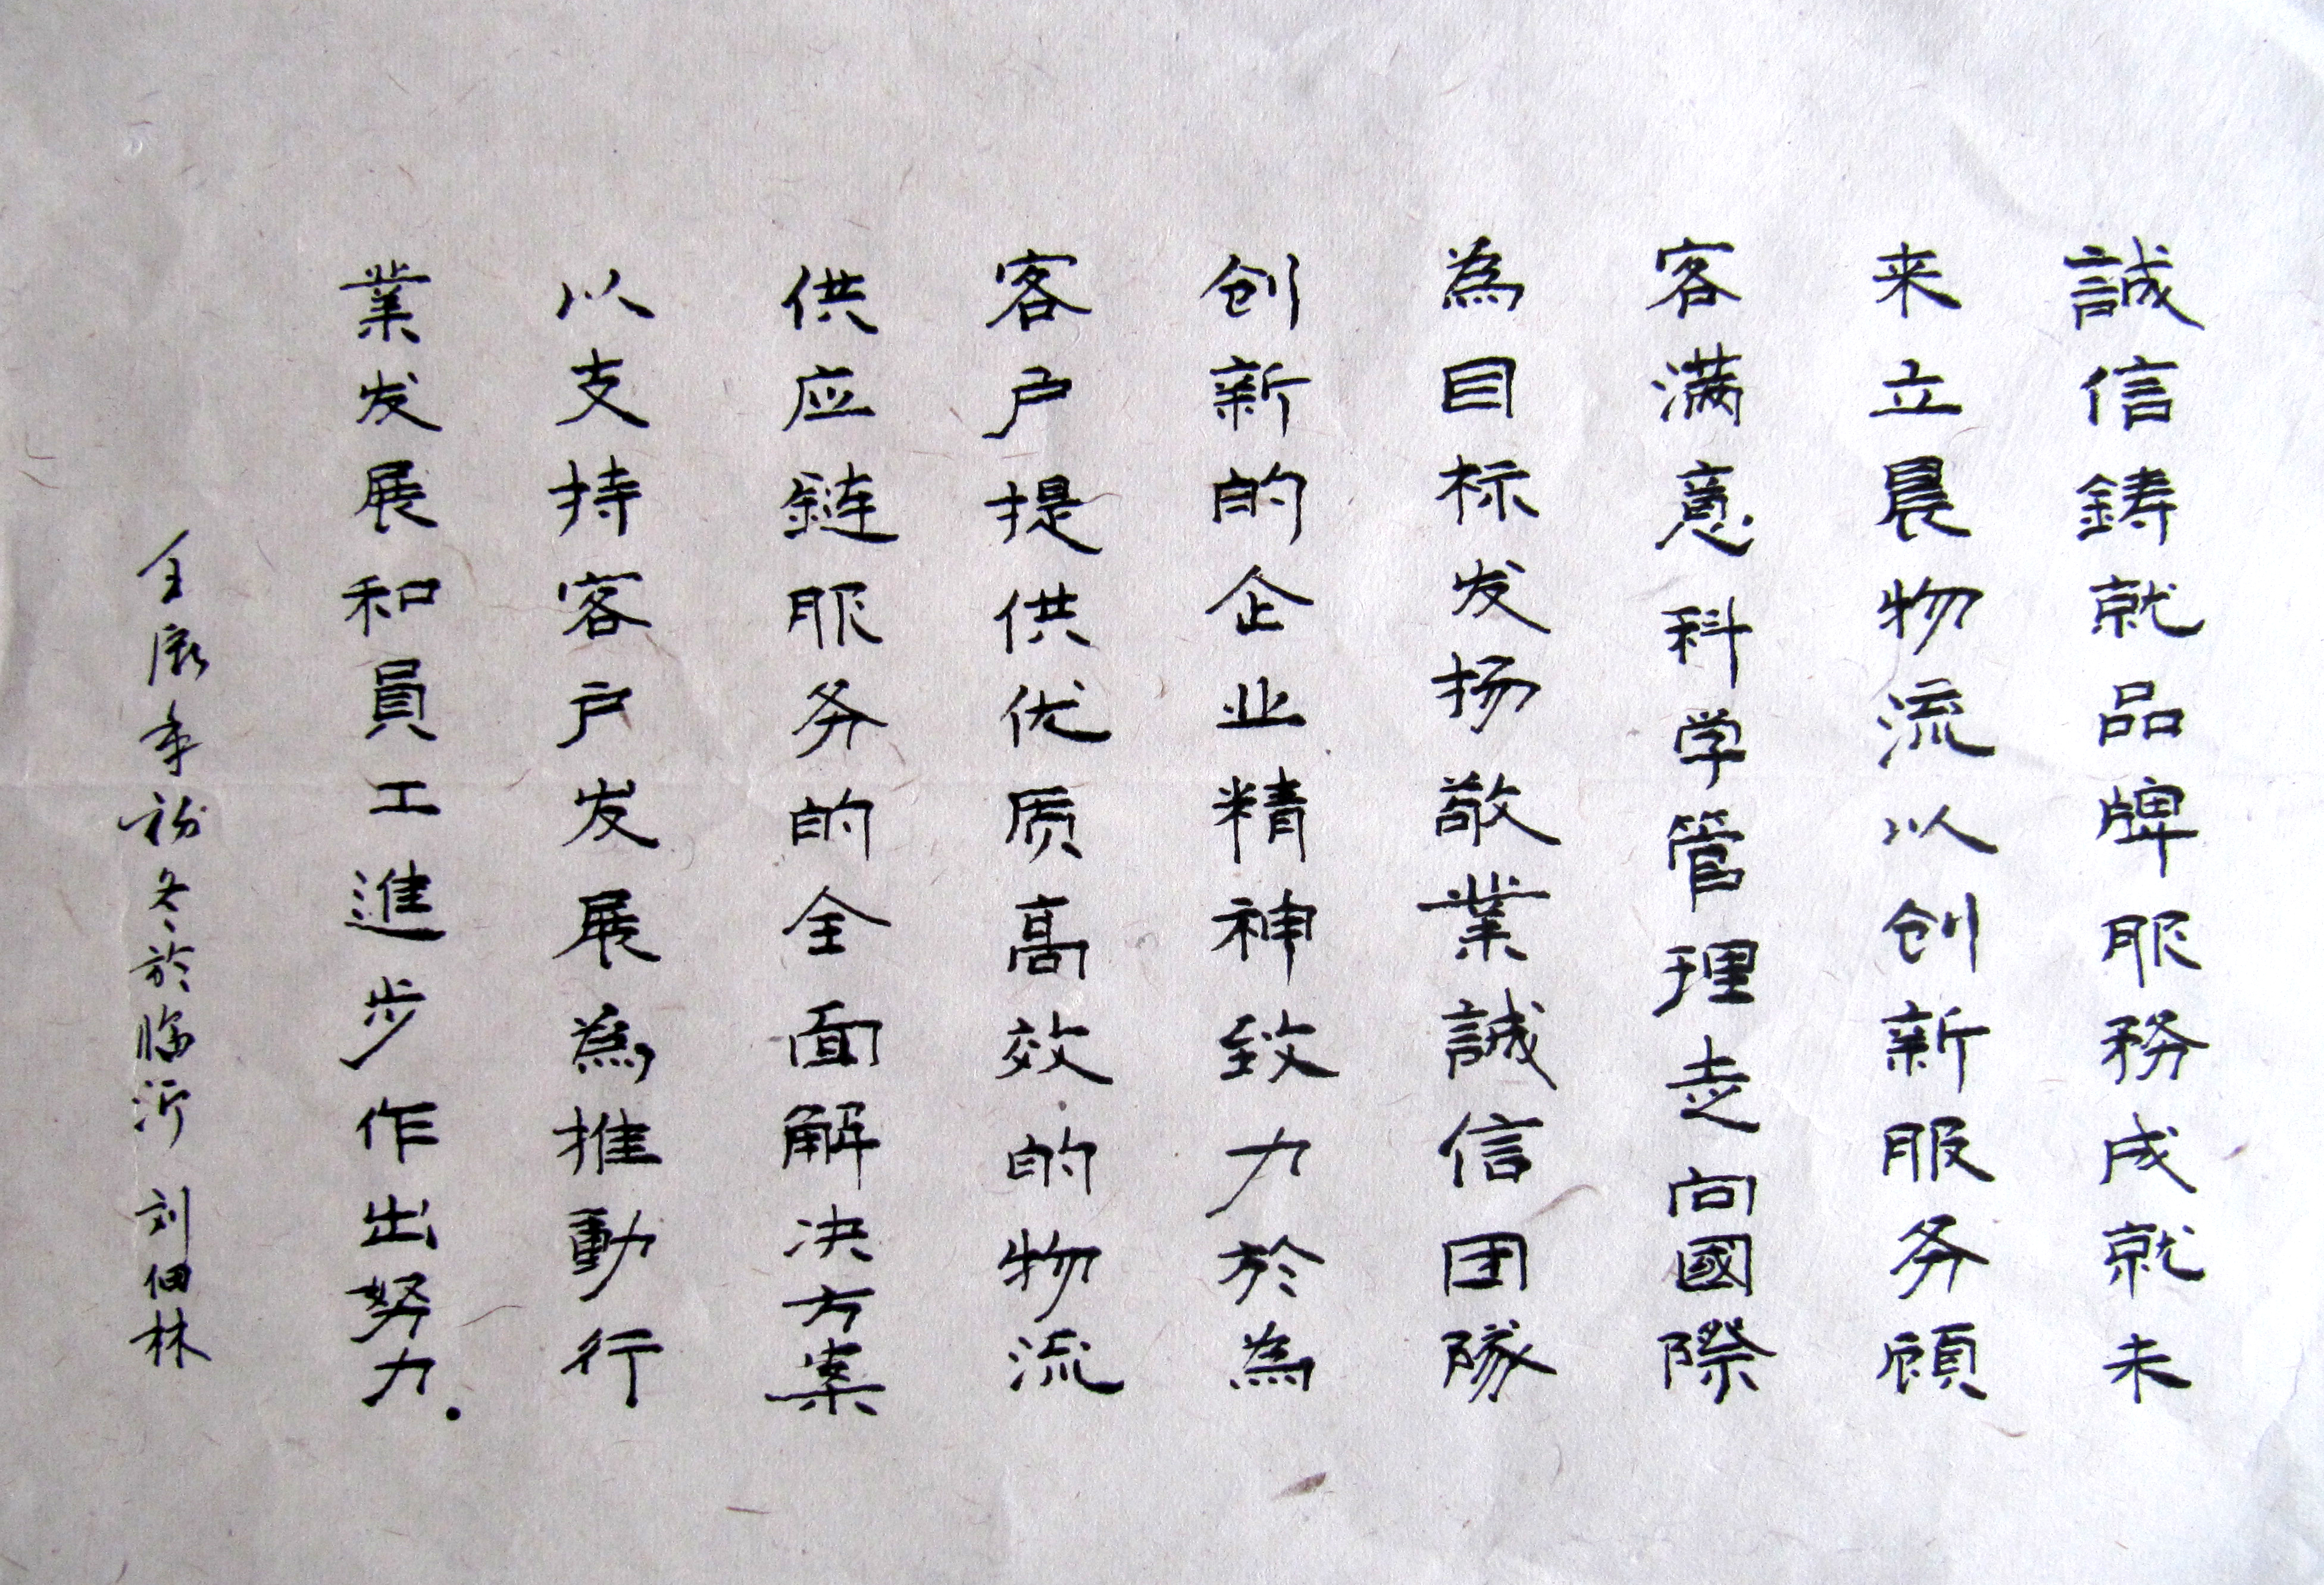 誠信鋳就品牌服務成就未
来立晨物流以创新服务顧
客满意科学管理走向國際
為目标发扬敬業誠信团隊
创新的企业精神致力於為
客户提供优质高效的物流
供应鏈服务的全面解决方案
以支持客户发展為推動行
業发展和員工進步作出努力.
年初冬於临沂 刘佃林